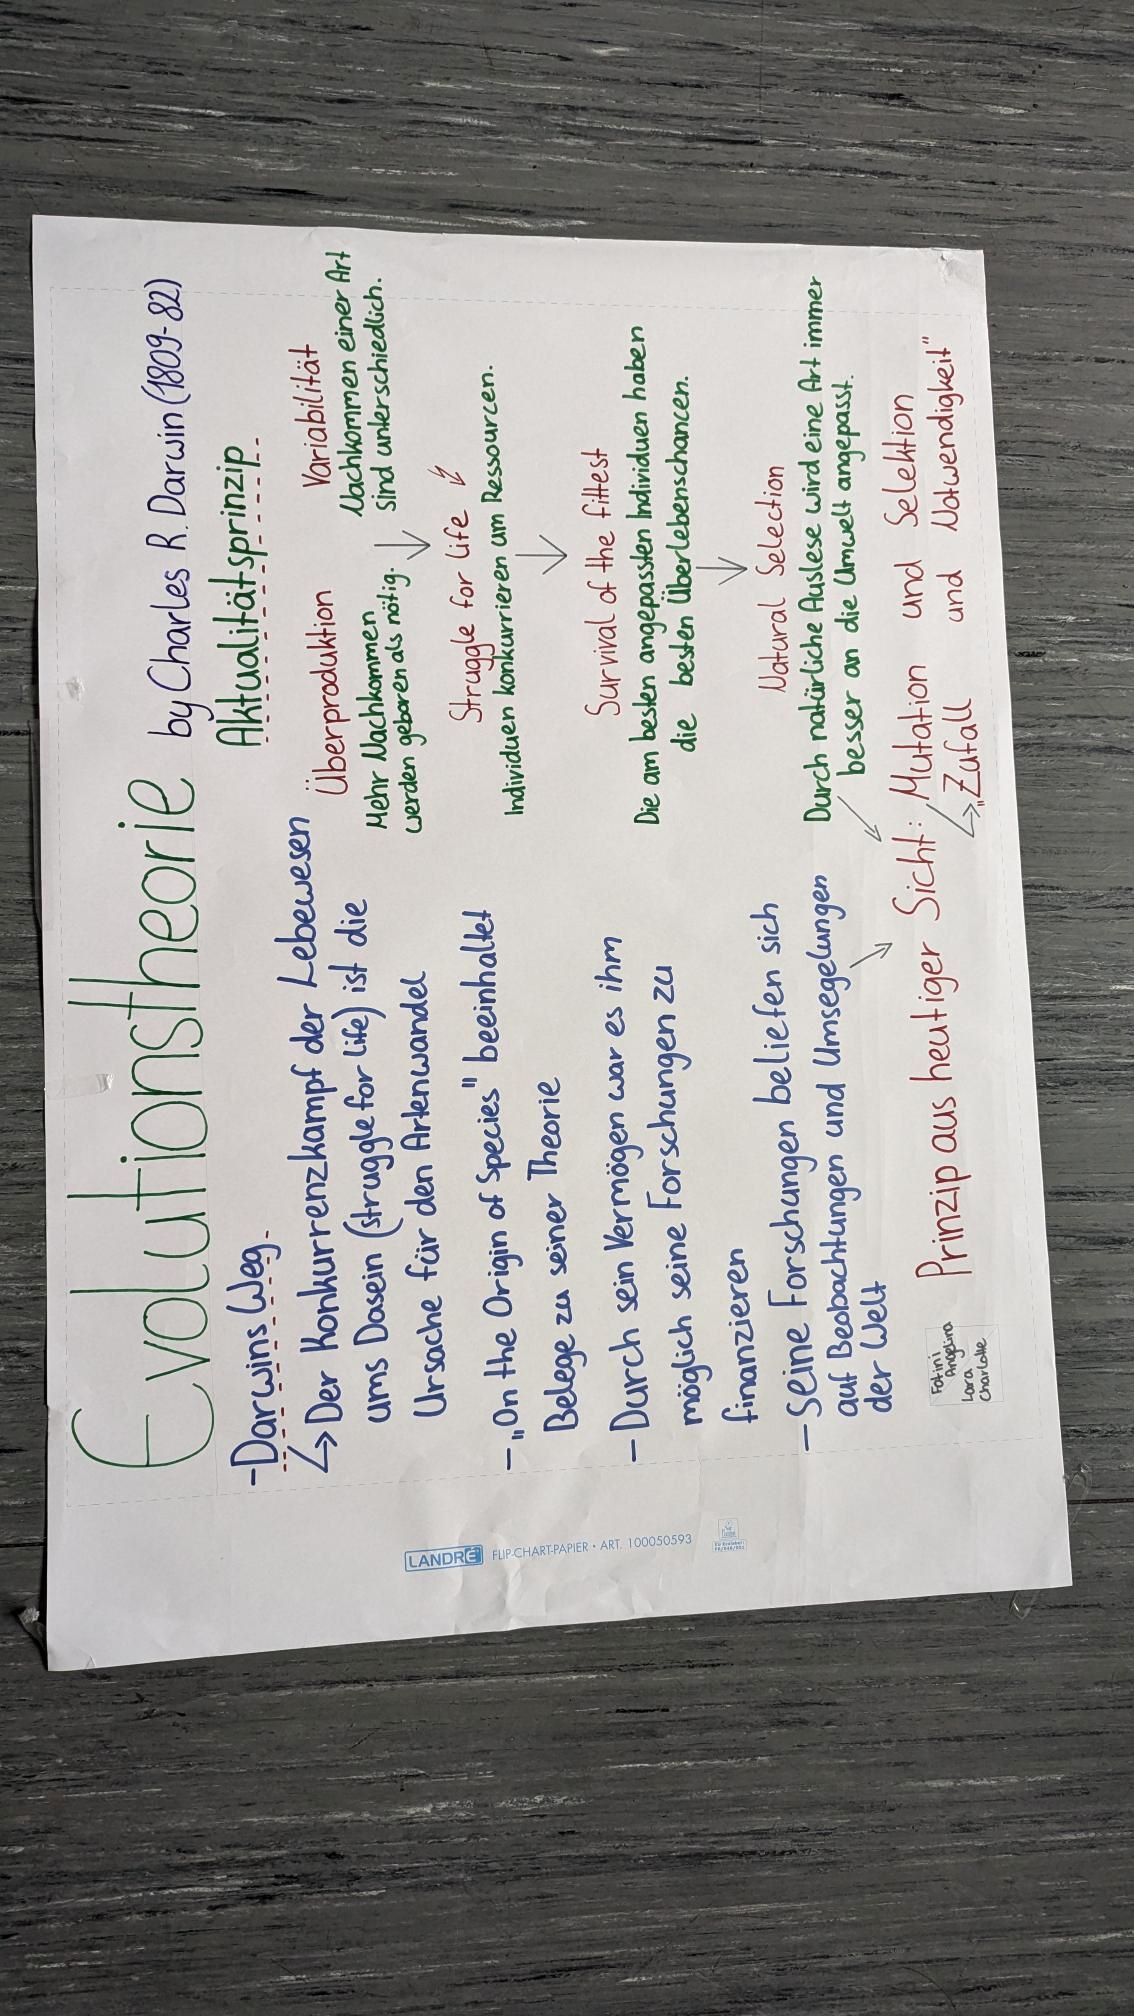 Evolutionstheorie by Charles R. Darwin (1809-82)
- Darwins Weg
↳ Der Konkurrenzkampf der Lebewesen
ums Dasein (struggle for life) ist die
Ursache für den Artenwandel
- „On the Origin of Species" beeinhaltet
Belege zu seiner Theorie
- Durch sein Vermögen war es ihm
möglich seine Forschungen zu
finanzieren
- Seine Forschungen beliefen sich
auf Beobachtungen und Umsegelungen
der Welt
Aktualitätsprinzip
Überproduktion
Mehr Nachkommen
werden geboren als nötig.
Variabilität
Nachkommen einer Art
sind unterschiedlich.
Struggle for life
Individuen konkurrieren um Ressourcen.
Survival of the fittest
Die am besten angepassten Individuen haben
die besten Überlebenschancen.
Natural Selection
Durch natürliche Auslese wird eine Art immer
besser an die Umwelt angepasst.
Prinzip aus heutiger Sicht: Mutation und Selektion
↳ „Zufall und Notwendigkeit"
Fotini
Angelina
Lara
Charlotte
LANDRÉ FLIP-CHART-PAPIER • ART. 100050593